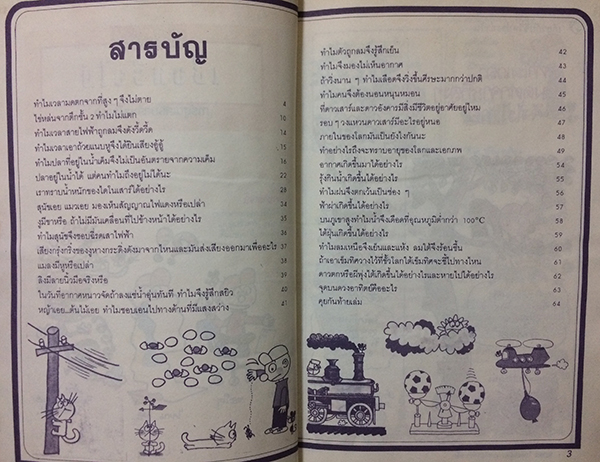 สารบัญ
ทำไมเวลามดตกจากที่สูง ๆ จึงไม่ตาย 4
ไข่หล่นจากตึกชั้น 2 ทำไมไม่แตก 10
ทำไมเวลาสายไฟฟ้าถูกลมจึงดังวี้ดวี้ด 14
ทำไมเวลาเอาถ้วยแนบหูจึงได้ยินเสียงอู้อู้ 15
ทำไมปลาที่อยู่ในน้ำเค็มจึงไม่เป็นอันตรายจากความเค็ม 16
ปลาอยู่ในน้ำได้ แต่คนทำไมถึงอยู่ไม่ได้นะ 22
เราทราบน้ำหนักของไดโนเสาร์ได้อย่างไร 28
สุนัขเอย แมวเอย มองเห็นสัญญาณไฟแดงหรือเปล่า 34
งูมีขาหรือ ถ้าไม่มีมันเคลื่อนที่ไปข้างหน้าได้อย่างไร 35
ทำไมสุนัขจึงชอบฉี่รดเสาไฟฟ้า 36
เสียงกรุ๋งกริ๋งของงูหางกระดิ่งดังมาจากไหนและมันส่งเสียงออกมาเพื่ออะไร 37
แมลงมีหูหรือเปล่า 38
ลิงมีลายนิ้วมือจริงหรือ 39
ในวันที่อากาศหนาวจัดถ้าลงแช่น้ำอุ่นทันที ทำไมจึงรู้สึกสยิว 40
หญ้าเอย...ต้นไม้เอย ทำไมชอบเอนไปทางด้านที่มีแสงสว่าง 41
ทำไมตัวถูกลมจึงรู้สึกเย็น 42
ทำไมจึงมองไม่เห็นอากาศ 43
ถ้าวิ่งนาน ๆ ทำไมเลือดจึงวิ่งขึ้นศีรษะมากกว่าปกติ 44
ทำไมคนจึงต้องนอนหนุนหมอน 45
ที่ดาวเสาร์และดาวอังคารมีสิ่งมีชีวิตอยู่อาศัยอยู่ไหม 46
รอบ ๆ วงแหวนดาวเสาร์มีอะไรอยู่หนอ 47
ภายในของโลกมันเป็นยังไงกันนะ 48
ทำอย่างไรถึงจะทราบอายุของโลกและเอกภพ 49
อากาศเกิดขึ้นมาได้อย่างไร 54
รุ้งกินน้ำเกิดขึ้นได้อย่างไร 55
ทำไมฝนจึงตกเว้นเป็นช่อง ๆ 56
ฟ้าผ่าเกิดขึ้นได้อย่างไร 57
บนภูเขาสูงทำไมน้ำจึงเดือดที่อุณหภูมิต่ำกว่า 100°C 58
ไต้ฝุ่นเกิดขึ้นได้อย่างไร 59
ทำไมลมเหนือจึงเย็นและแห้ง ลมใต้จึงร้อนชื้น 60
ถ้าเอาเข็มทิศวางไว้ที่ขั้วโลกใต้เข็มทิศจะชี้ไปทางไหน 61
ดาวตกหรือผีพุ่งใต้เกิดขึ้นได้อย่างไรและหายไปได้อย่างไร 62
จุดบนดวงอาทิตย์คืออะไร 63
คุยกันท้ายเล่ม 64
3